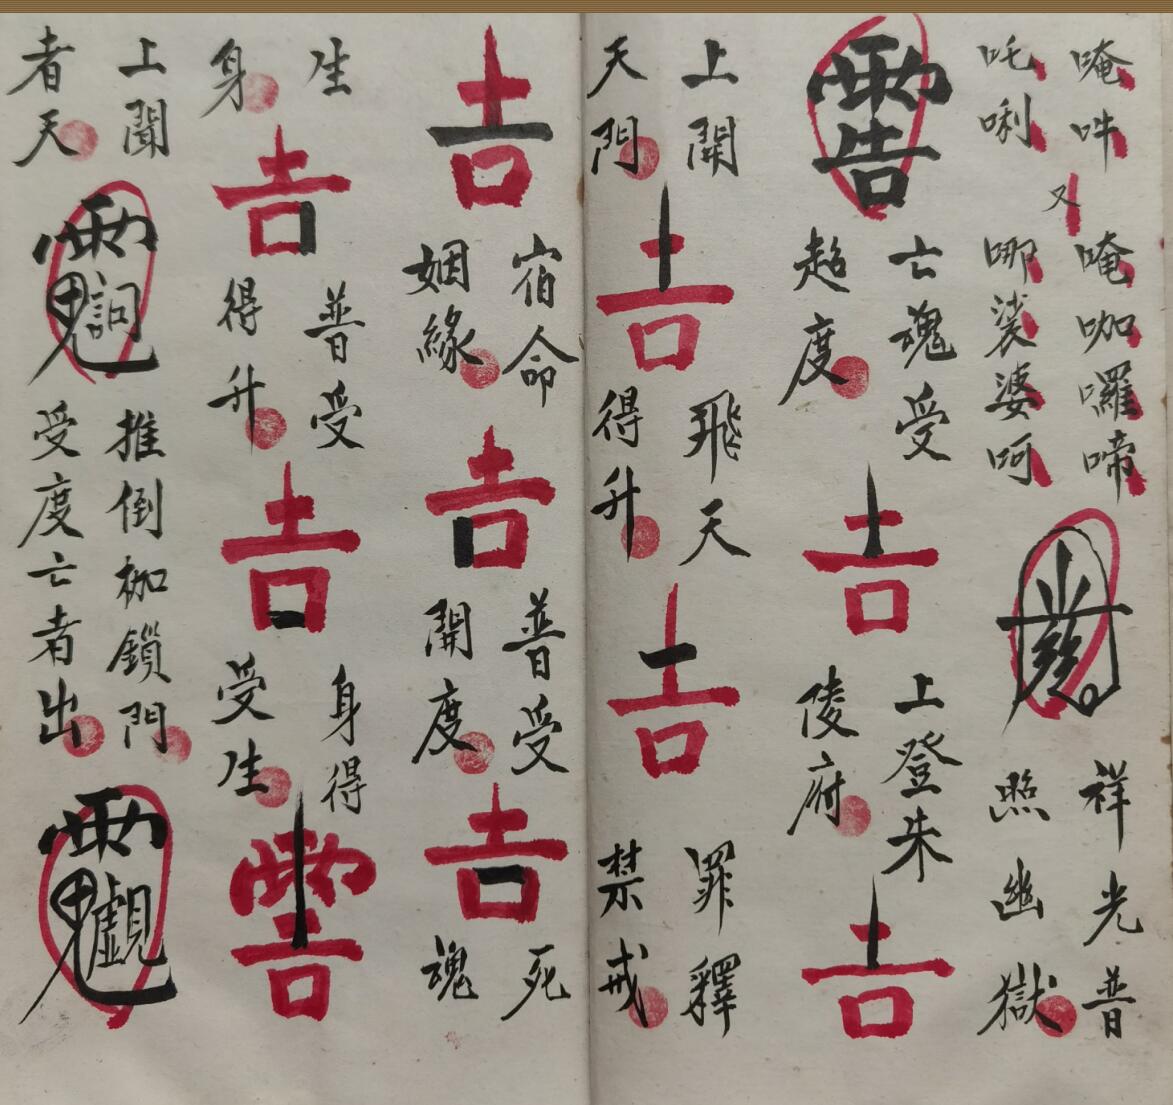 唵吽
吒唎
又
唵咖囉啼
哪裟婆呵
祥光普
照幽獄
亡魂受
超度
𠮷
上登朱
陵府
𠮷
上開
天門
𠮷
飛天
得升
𠮷
罪釋
禁戒
𠮷
宿命
姻緣
𠮷
普受
開度
𠮷
死
魂
生
身
𠮷
普受
得升
𠮷
身得
受生
上聞
者天
推倒枷鎖門
受度亡者出